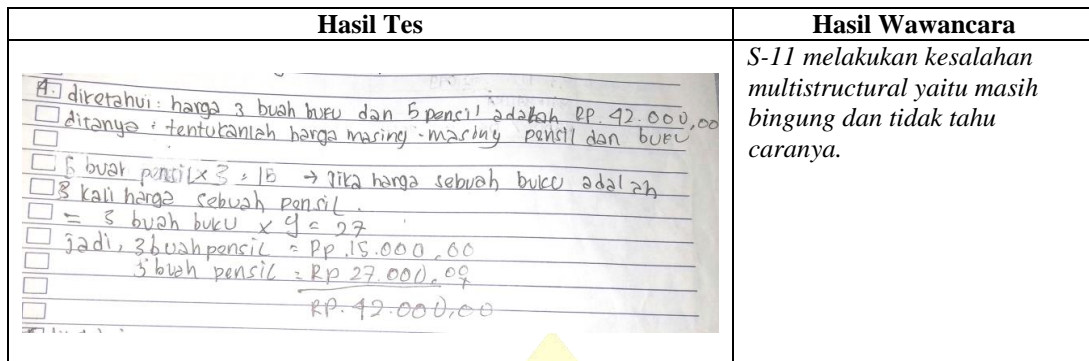 Hasil Tes
Hasil Wawancara
4. diketahui : harga 3 buah buku dan 5 pensil adalah RP. 42.000,00
ditanya : tentukanlah harga masing-masing pensil dan buku
5 buah pensil x 3 = 15 → Jika harga sebuah buku adalah
3 kali harga sebuah pensil.
= 3 buah buku x 9 = 27
jadi, 3 buah pensil = Rp. 15.000,00
3 buah pensil = Rp 27.000,00
RP. 42.000,00
S-11 melakukan kesalahan
multistructural yaitu masih
bingung dan tidak tahu
caranya.